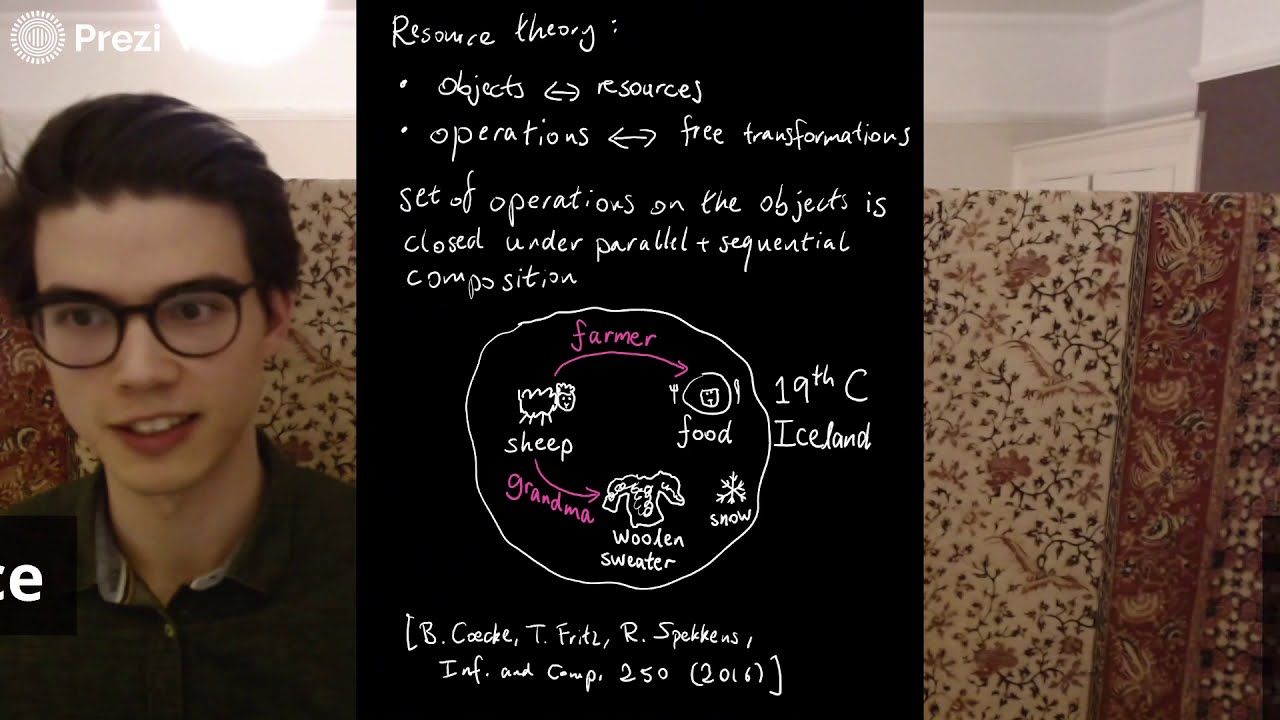 Prezi
Resource theory:
• objects ↔ resources
• operations ↔ free transformations
set of operations on the objects is
closed under parallel + sequential
composition
farmer
sheep
food
19th C
Iceland
grandma
wooden
sweater
snow
[B. Coecke, T. Fritz, R. Spekkens,
Inf. and Comp. 250 (2016)]
ce